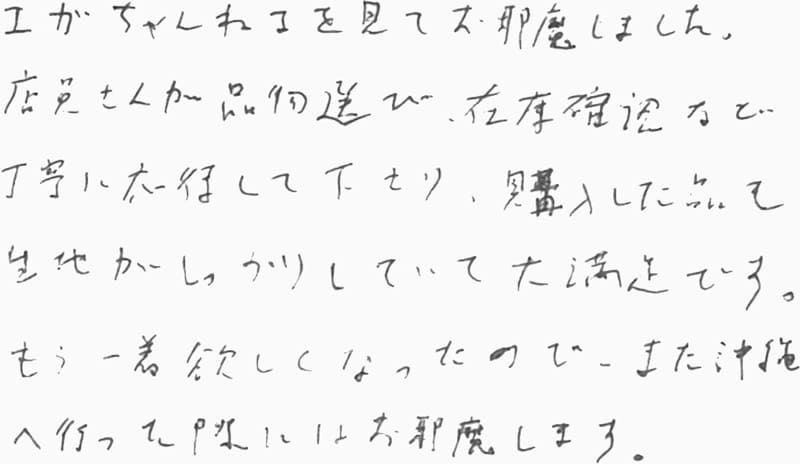 エガちゃんねるを見てお邪魔しました。
店員さんが品物選び、在庫確認など
丁寧に応待して下さり、購入した品も
生地がしっかりしていて大満足です。
もう一着欲しくなったので、また沖縄
へ行った際にはお邪魔します。